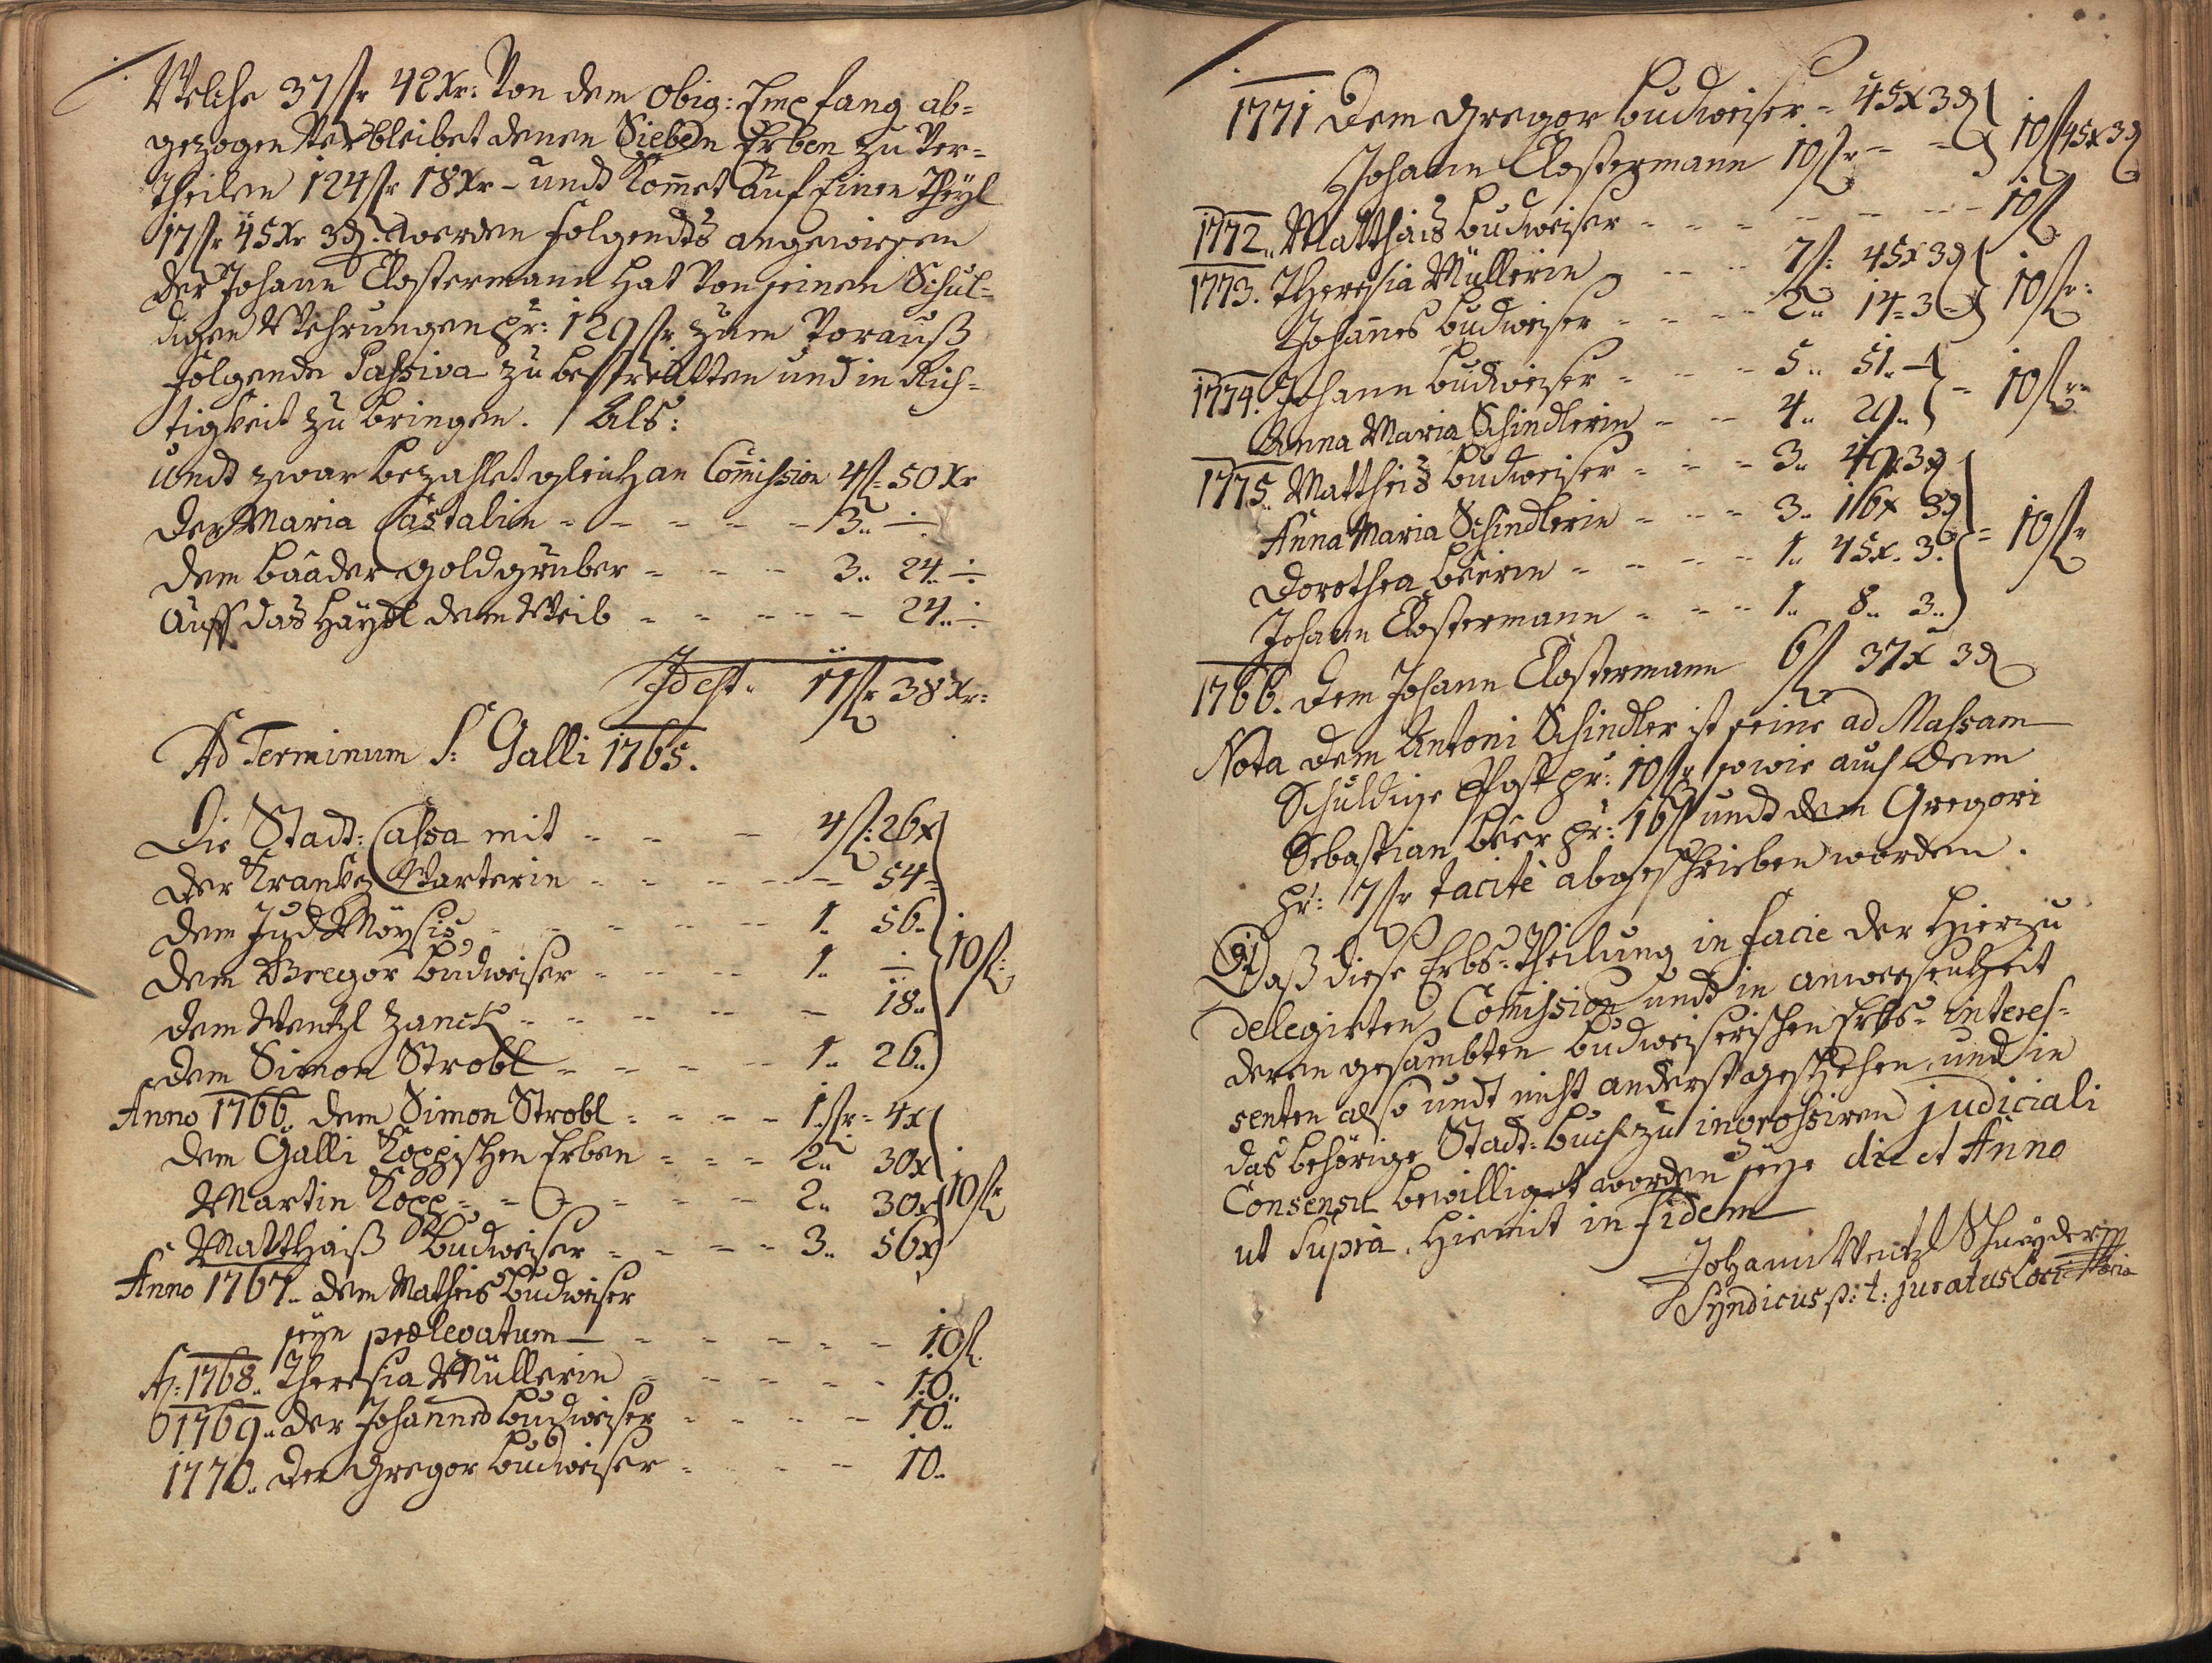 Welche 37 fr 42 Xr: Von dem obig: Empfang ab=
gezogen Verbleibet denen Sieben Erben zu Ver=
theilen 124 fr 18 Xr – undt kom̅et auf Einen Theyl
17 fr 45 Xr 3 ₰. werden folgendts angewiesen
Der Johann Clostermann hat Von seinen Schul=
digen Wehrungen pr: 129 fr zum Vorauß
folgende Passiva zu bestreitten und in Rich=
tigkeit zu bringen. / Als:
undt zwar bezahlet gleich an Com̅ission 4 f: 50 Xr
der Maria Castalin - - - - - 3.. ÷
dem Baader Goldgruber - - - 3.. 24.. ÷
Auff das Häyßl dem Weib - - - - - 24.. ÷
Id est. 11 fr 38 Xr:
Ad Terminum S: Galli 1765.
Die Stadt: Cassa mit - - - 4 f: 26 x
der Krankhen Warterin - - - - - 54 =
dem Jud Möysis - - - - - 1.. 56..
dem Gregor Budweiser - - - - 1.. ÷ 10 f:
dem Wentzl Zanck - - - - - 18..
dem Simon Strobl - - - - - 1.. 26..
Anno 1766. dem Simon Strobl - - - - 1 fr = 4 x
dem Galli Koppischen Erben - - - 2.. 30 x
Martin Kopp - - - - - - 2.. 30 x 10 fr
Matthaiß Budweiser - - - - 3.. 56 x
Anno 1767.. dem Matheis Budweiser
seyn prælegatum - - - - - - 10 f.
A: 1768.. Theresia Müllerin - - - - - - 10..
1769.. der Johannes Budweiser - - - - - 10..
1770.. der Gregor Budweiser - - - - 10..
1771 dem Gregor Budweiser - 45 x 3 ₰
Johann Clostermann 10 fr - - 10 f 45 x 3 ₰
1772.. Matthais Budweiser - - - - - - - 10 f
1773. Theresia Müllerin - - - - 7 f: 45 x 3 ₰
Johannes Budweiser - - - - 2.. 14 = 3 10 fr:
1774. Johann Budweiser - - - 5.. 51.. –
Anna Maria Schindlerin - - - 4.. 29.. = 10 fr =
1775.. Mattheis Budweiser - - - 3.. 3 ₰
Anna Maria Schindlerin - - - 3.. 16 x 3 ₰
Dorothea Beerin - - - - - 1.. 45 x. 3. = 10 fr
Johann Clostermann - - - - 1.. 8.. 3..
1766. dem Johann Clostermann 6 f 37 x 3 ₰
Nota dem Antoni Schindler ist seine ad Massam
Schuldige Post pr: 10 fr sowie auch dem
Sebastian Beer pr: 16 f undt dem Gregori
pr: 7 fr tacitè abgeschrieben worden.
Daß diese Erbs=Theilung in facie der hierzu
delegirten Com̅ission undt in anwesenheit
deren gesambten Budweiserischen Erbs=Interes=
senten also undt nicht anderst geschehen und in
das behörige Stadt=Buch zu ingrossiren judiciali
Consensu bewilliget worden seye die et Anno
ut Supra, hiemit in fidem
Johann Wentzl Schneyder mp
Syndicus p: t: juratus Loci